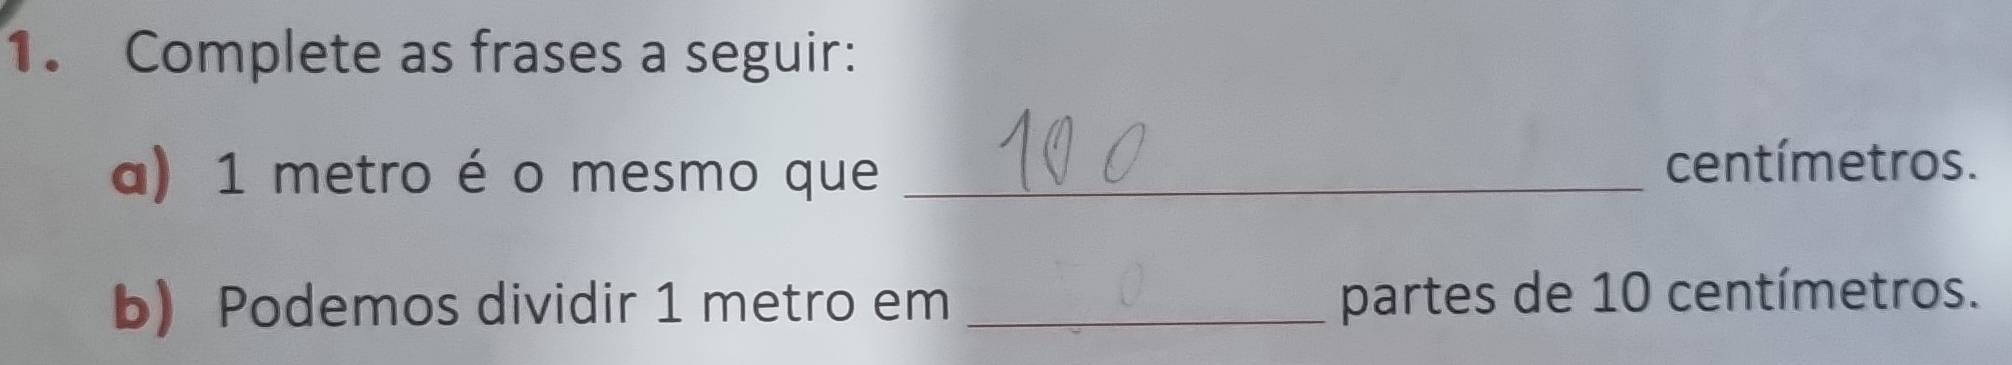 1. Complete as frases a seguir:
a) 1 metro é o mesmo que 100 centímetros.
b) Podemos dividir 1 metro em ______ partes de 10 centímetros.